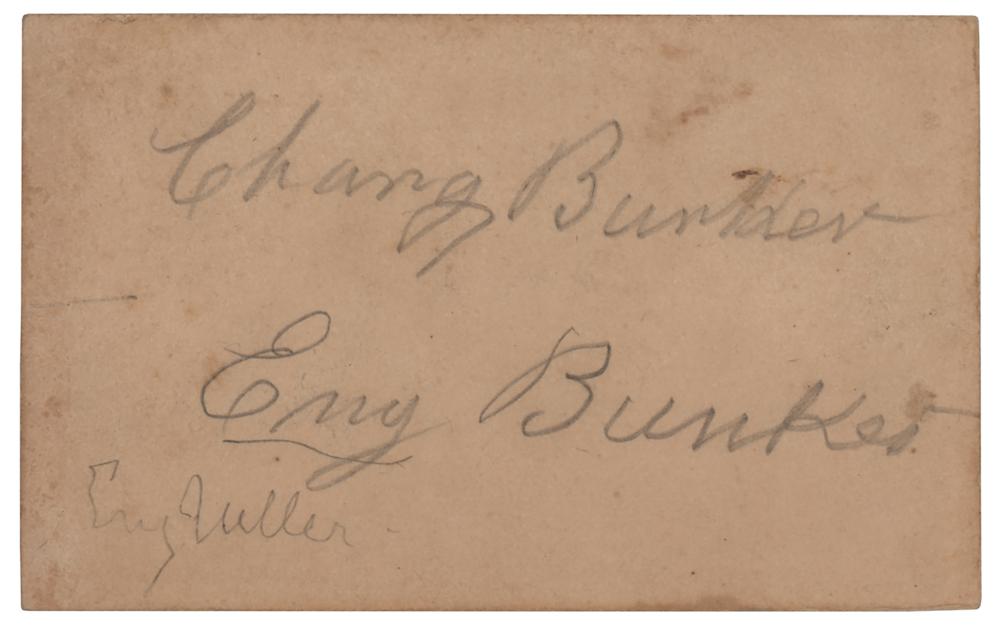 Chang Bunker
Eng Bunker
Eng